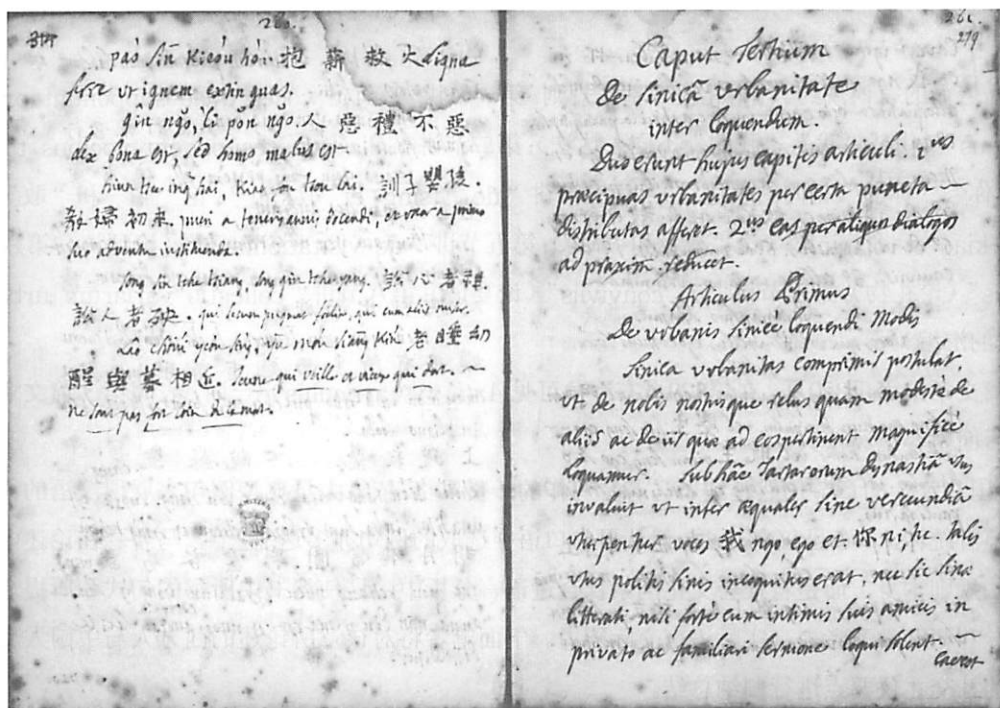 260.
páo sīn kieóu hò. 抱 薪 救 火 ligna
ferre ut ignem extinguas.
gîn ngŏ, lì pŏu ngŏ. 人 惡 禮 不 惡
lex bona est, sed homo malus est.
hiun tsu ing hai, kiao fou tsou lai. 訓 子 嬰 孩.
敎 婦 初 來, pueri a teneris annis docendi, et uxor a primo
suo adventu instituenda.
song sin tche siang, song gin tche yang. 訟 心 者 祥.
訟 人 者 殃. qui secum pugnat felix, qui cum aliis miser.
Lào chóui yeóu sìng, yù mou siāng kìn 老 睡 幼
醒 與 墓 相 近. Jeune qui veille et vieux qui dort. ~
ne sont pas fort loin de la mort.
261.
219
Caput tertium
De sinicâ urbanitate
inter loquendum.
Duo erunt hujus capitis articuli. 1us
præcipuas urbanitates per certa puncta —
distributas afferet. 2us eas per aliquos dialogos
ad praxim reducet.
Articulus Primus
De urbanis sinicè loquendi modis
Sinica urbanitas comprimis postulat,
ut de nobis nostrisque rebus quam modestè de
aliis ac de iis quæ ad eos pertinent magnificè
loquamur. Sub hâc Tartarorum dynastiâ usus
invaluit ut inter æquales sine verecundiâ
usurpentur voces 我 ngo, ego et 你 ni, tu. talis
usus politis sinis incognitus erat, nec sic sinæ
litterati, nisi fortè cum intimis suis amicis in
privato ac familiari sermone loqui solent. —